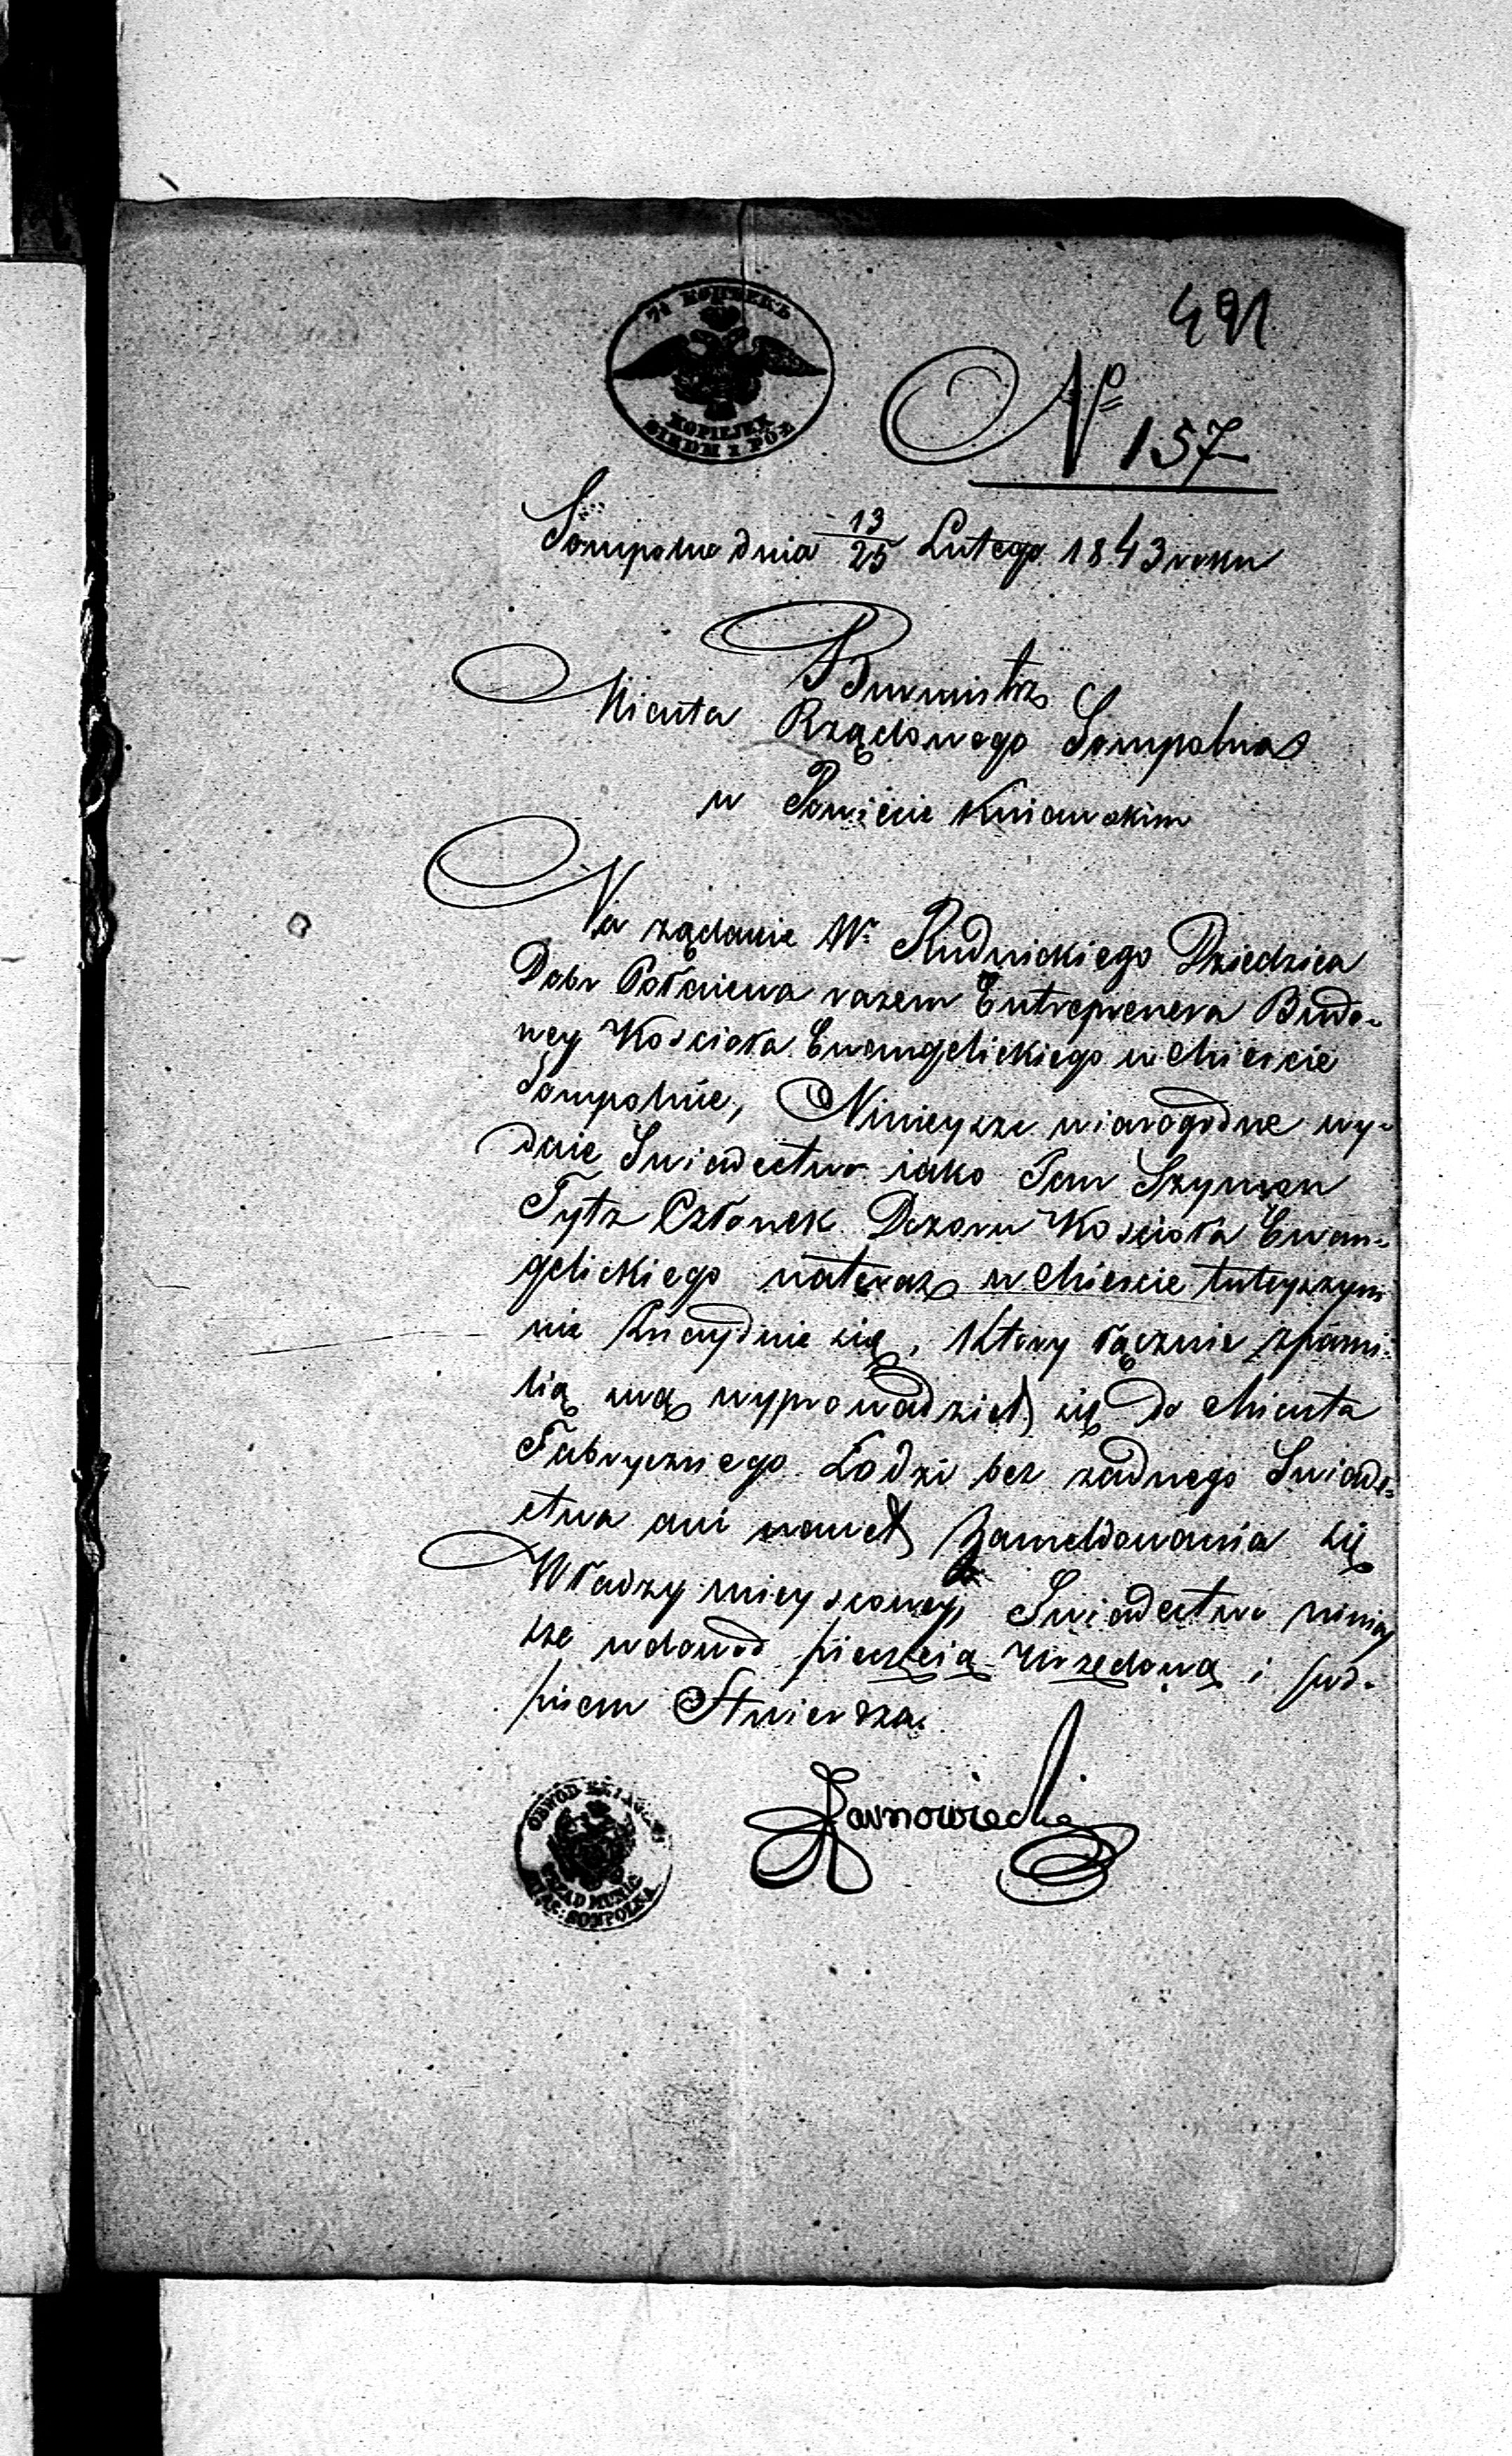 491
7½ КОПѢЕКЪ
KOPIEJEK
SIEDM I PÓŁ
No 157
Sompolno dnia 13/25 Lutego 1843 roku
Burmistrz
Miasta Rządowego Sompolna
w Powiecie Kuiawskim
Na żądanie W. Rudnickiego Dziedzica
Dobr Połaiewa razem Entreprenera Budo-
wey Kościoła Ewangelickiego w Mieście
Sompolnie, Ninieysze wiarogodne wy-
daie Swiadectwo iako Pan Szymon
Tytz Członek Dozoru Kościoła Ewan-
gelickiego nateraz w Mieście tuteyszym
nie znayduie się, ktory łącznie z fami-
lią swą wyprowadził się do Miasta
Fabrycznego Łodzi bez żadnego Swiade-
ctwa ani nawet Zameldowania się
Władzy mieyscowey, Swiadectwo niniey
sze w dowod pieczęcią Urzędową i pod-
pisem Stwierdza.
Jarnowiecki
OBWÓD
URZĄD MUNIC
MIAS: SOMPOLNA